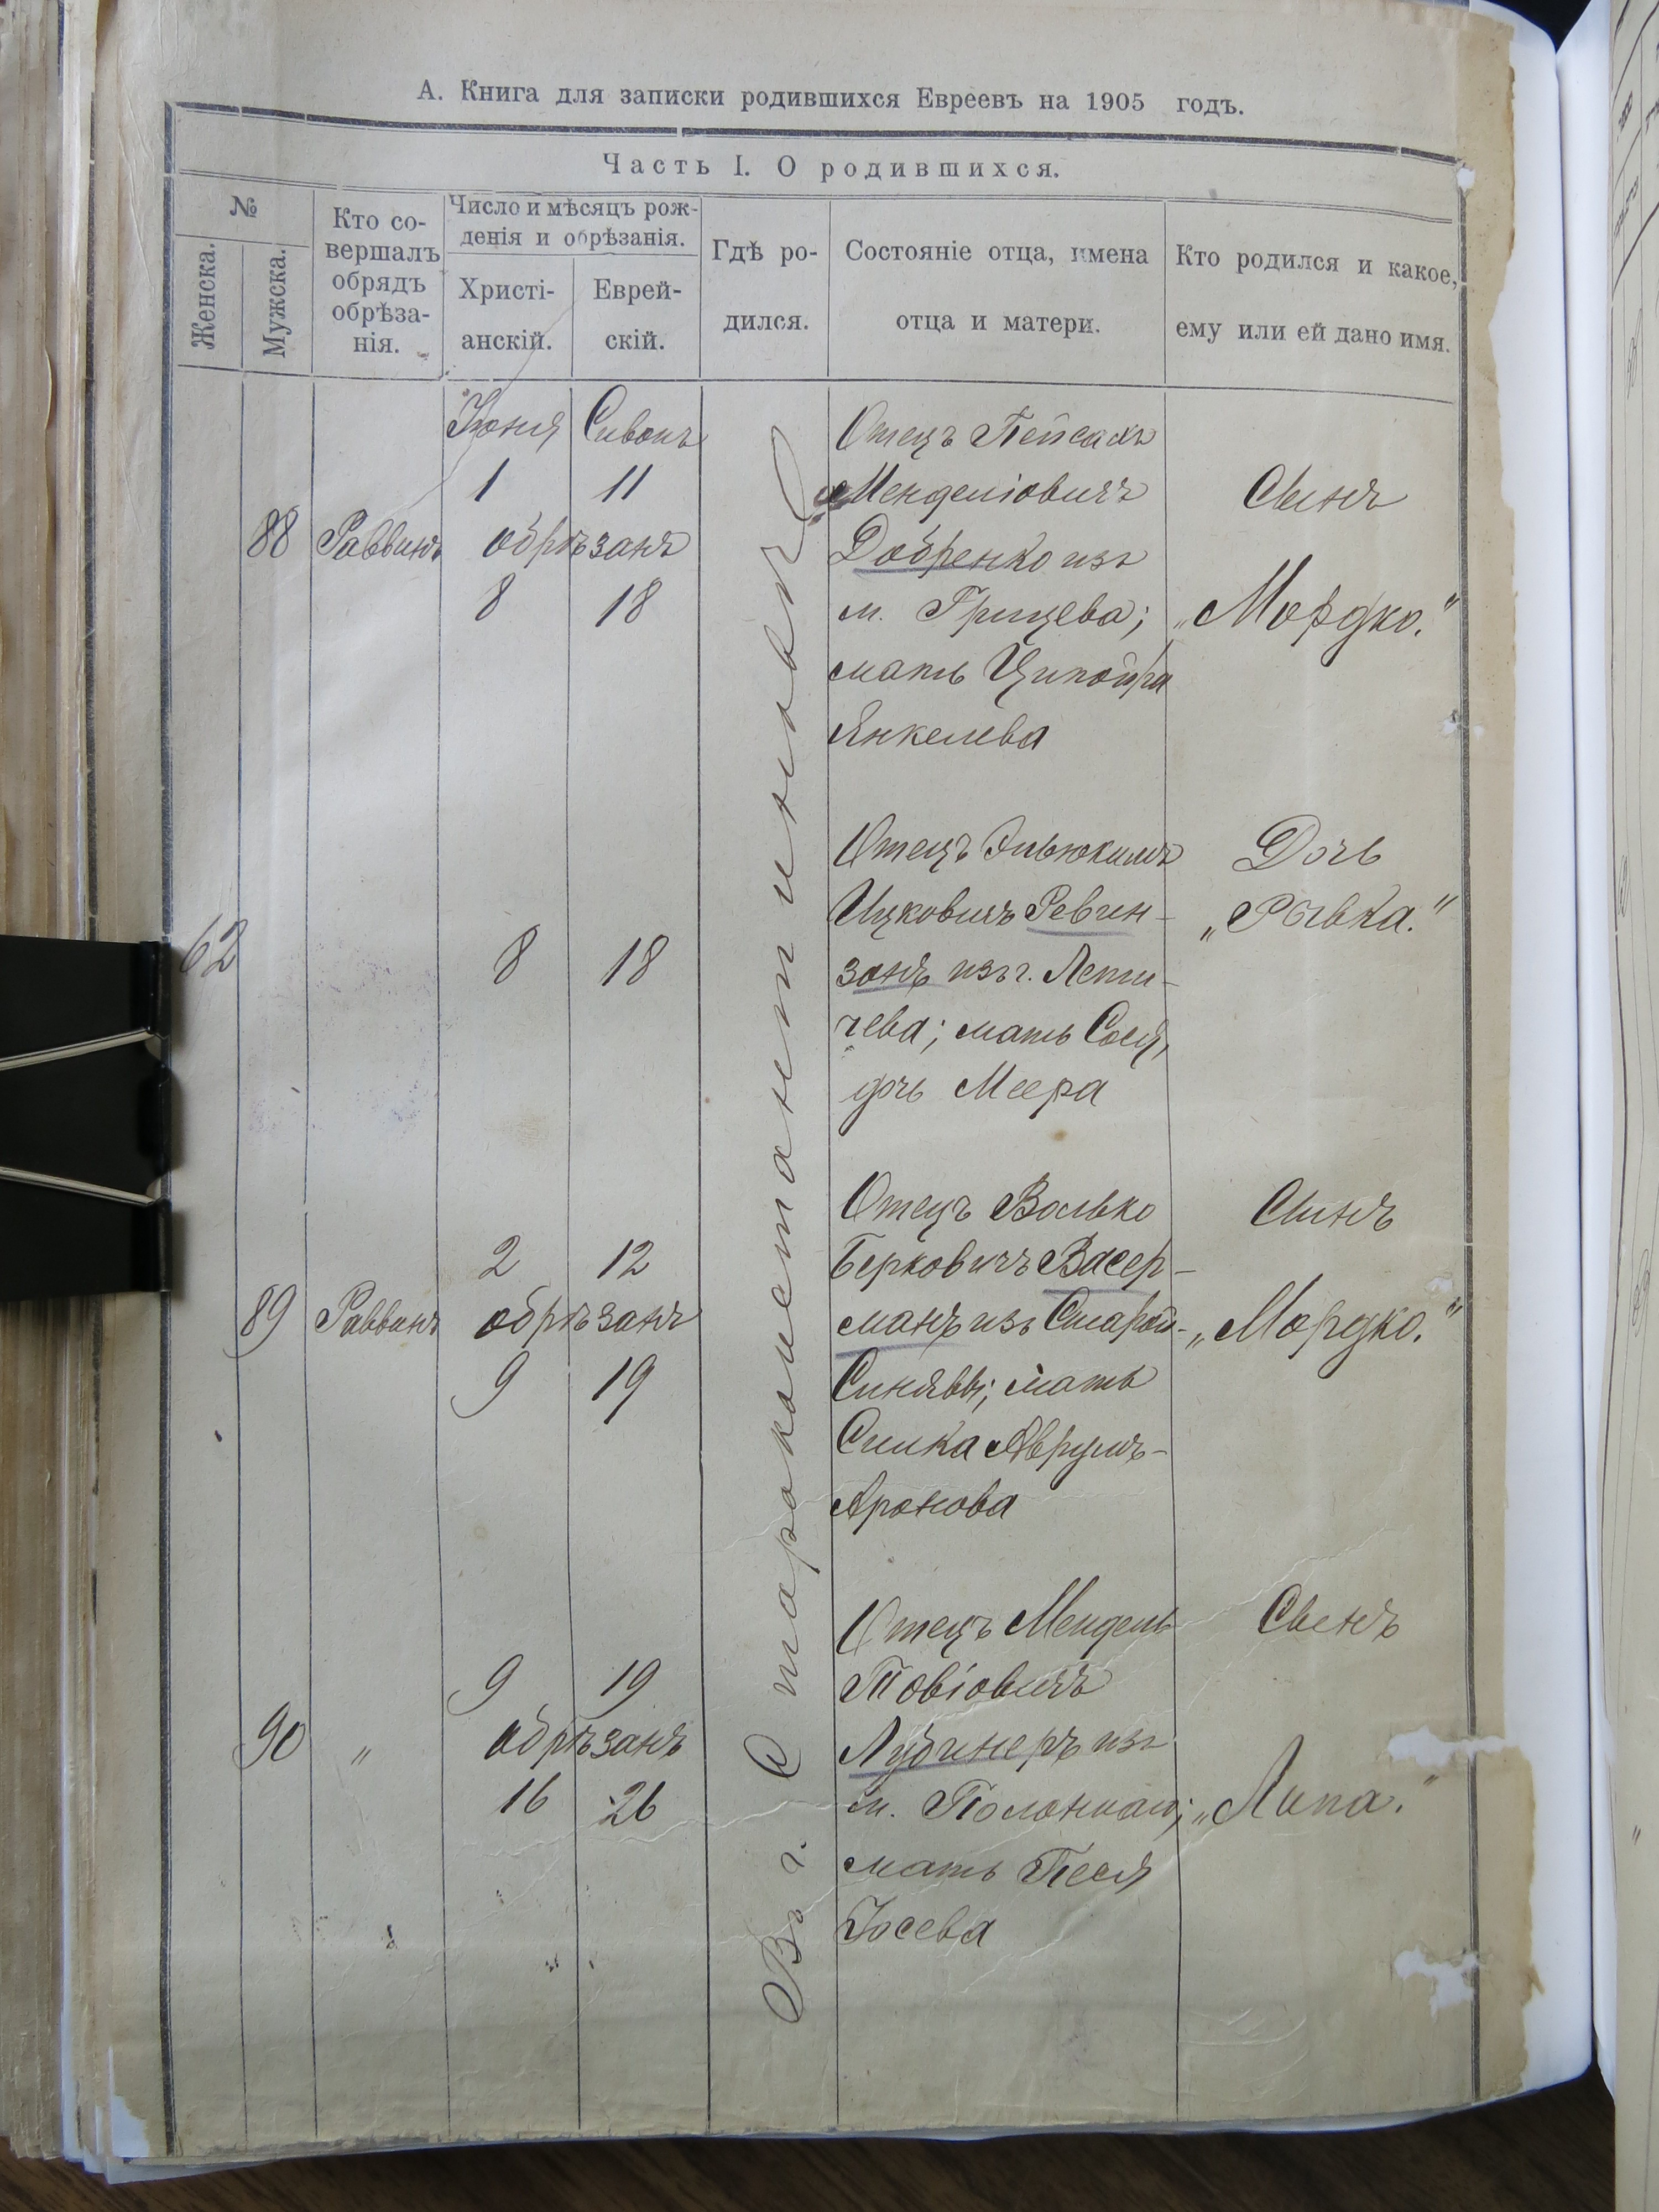 А. Книга для записки родившихся Евреевъ на 1905 годъ.
Часть I. О родившихся.
№
Женска.
Мужска.
Кто со-
вершалъ
обрядъ
обрѣза-
нія.
Число и мѣсяцъ рож-
денія и обрѣзанія.
Христі-
анскій.
Еврей-
скій.
Гдѣ ро-
дился.
Состояніе отца, имена
отца и матери.
Кто родился и какое,
ему или ей дано имя.
Въ г. Староконстантиновѣ
Іюня Сивонъ
1 11
88 Раввинъ обрѣзанъ
8 18
Отецъ Пейсахъ
Менделіовичъ
Добренко изъ
м. Грицева;
мать Ципойра
Янкелева
Сынъ
„Мордко."
62
8 18
Отецъ Эльюкимъ
Ицковичъ Ревин-
зонъ изъ г. Лети-
чева; мать Сося,
дочь Меера
Дочь
„Рывка."
2 12
89 Раввинъ обрѣзанъ
9 19
Отецъ Волько
Берковичъ Васер-
манъ изъ Старой-
Синявы; мать
Симка Аврумъ-
Аронова
Сынъ
„Мордко."
9 19
90 „ обрѣзанъ
16 26
Отецъ Мендель
Товіовичъ
Лубинеръ изъ
м. Полонная;
мать Песя
Іосева
Сынъ
„Липа."